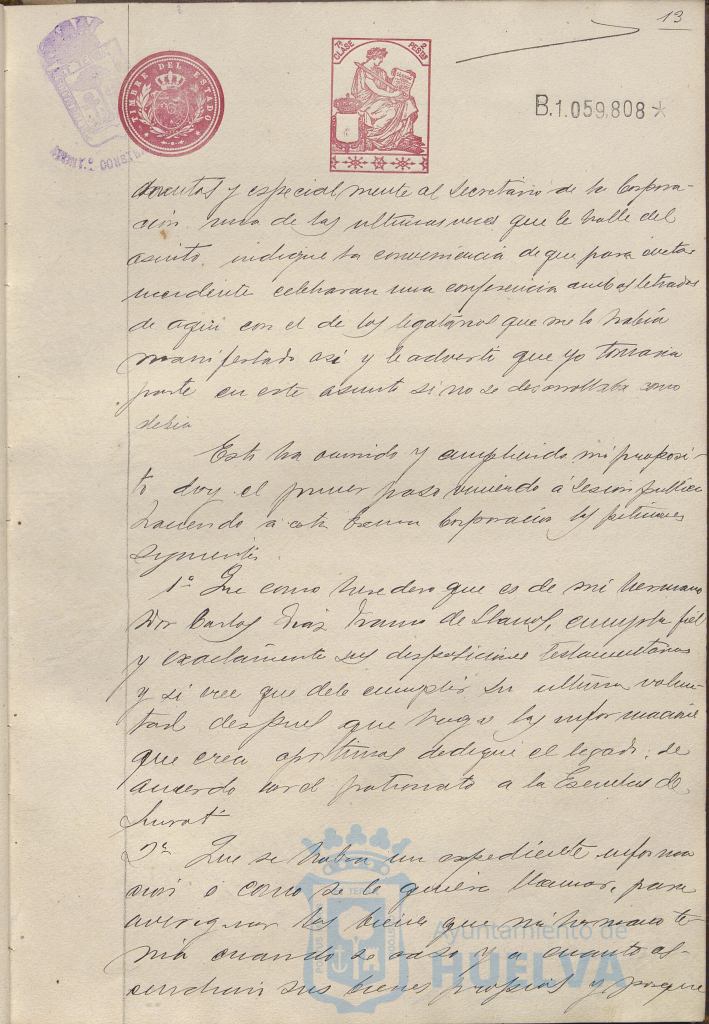 13
TIMBRE DEL ESTADO
7ª CLASE 2 PESETAS
B.1.059,808 *
y especialmente al Secretario de la Corpora-
ción una de las ultimas veces que le hable del
asunto, indique la conveniencia de que para
celebraran una conferencia ambos letrados
de aqui con el de los legatarios que me lo habia
manifestado asi y le adverti que yo tomaria
parte en este asunto si no se desarrollaba como
debia
Esto ha ocurrido y cumpliendo mi proposi-
to doy el primer paso viniendo á sesion publica
haciendo a esta Excma Corporación las peticiones
siguientes.
1ª Que como heredero que es de mi hermano
Don Carlos Diaz Franco de Llanos, cumpla fiel
y exactamente sus disposiciones testamentarias
y si cree que debe cumplir su ultima volun-
tad despues que haga las informaciones
que crea oportunas dedique el legado, de
acuerdo con el patronato a la Escuelas de
2ª Que se habra un expediente informa
cion o como se le quiera llamar, para
averiguar los bienes que mi hermano te-
nia cuando se caso y a cuanto as-
cendian sus bienes propios y porque
Ayuntamiento de
HUELVA